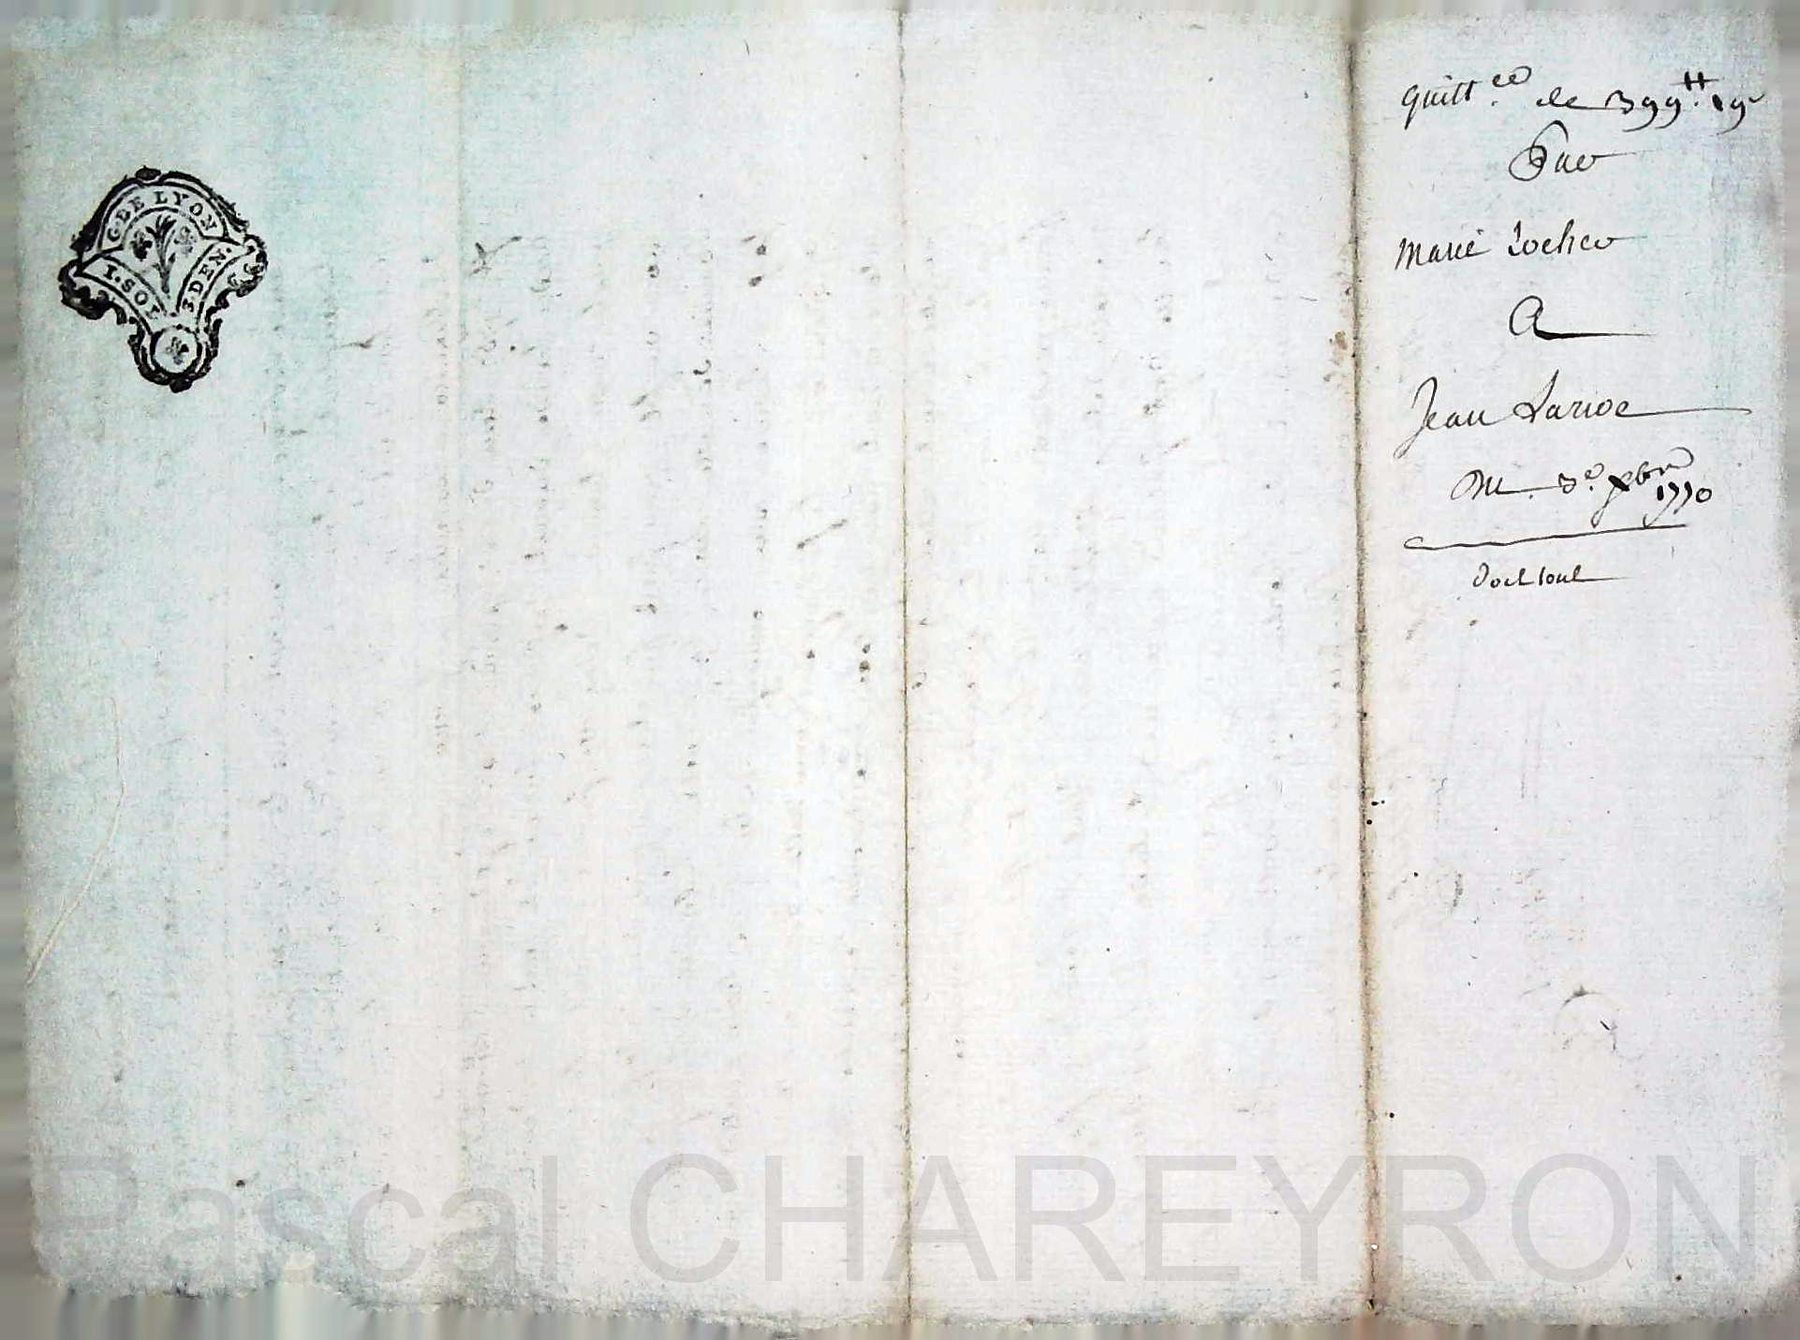 G. DE LYON
1. SOL 3 DEN.
quitt.ce de 399.tt 19s
Par
Marie Rocher
A
Jean Larive
Du. 3e. xbre
1770
Pascal CHAREYRON